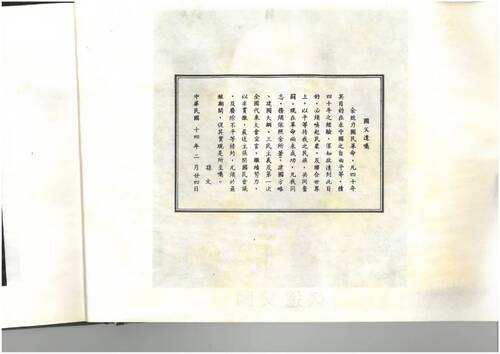 國父遺囑
余致力國民革命，凡四十年
其目的在求中國之自由平等，積
四十年之經驗，深知欲達到此目
的，必須喚起民眾，及聯合世界
上，以平等待我之民族，共同奮
鬥，現在革命尚未成功，凡我同
志，務須依照余所著，建國方略
、建國大綱、三民主義及第一次
全國代表大會宣言，繼續努力，
以求貫徹，最近主張開國民會議
，及廢除不平等條約，尤須於最
短期間，促其實現是所至囑。
孫文
中華民國 十四年 二月廿四日